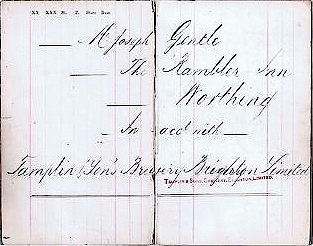 XX XXX S. P. Stout Beer
Mr Joseph Gentle
The Rambler Inn
Worthing
In acct with
Tamplin & Son's Brewery Brighton Limited
TAMPLIN & SONS, BREWERY, BRIGHTON, LIMITED.